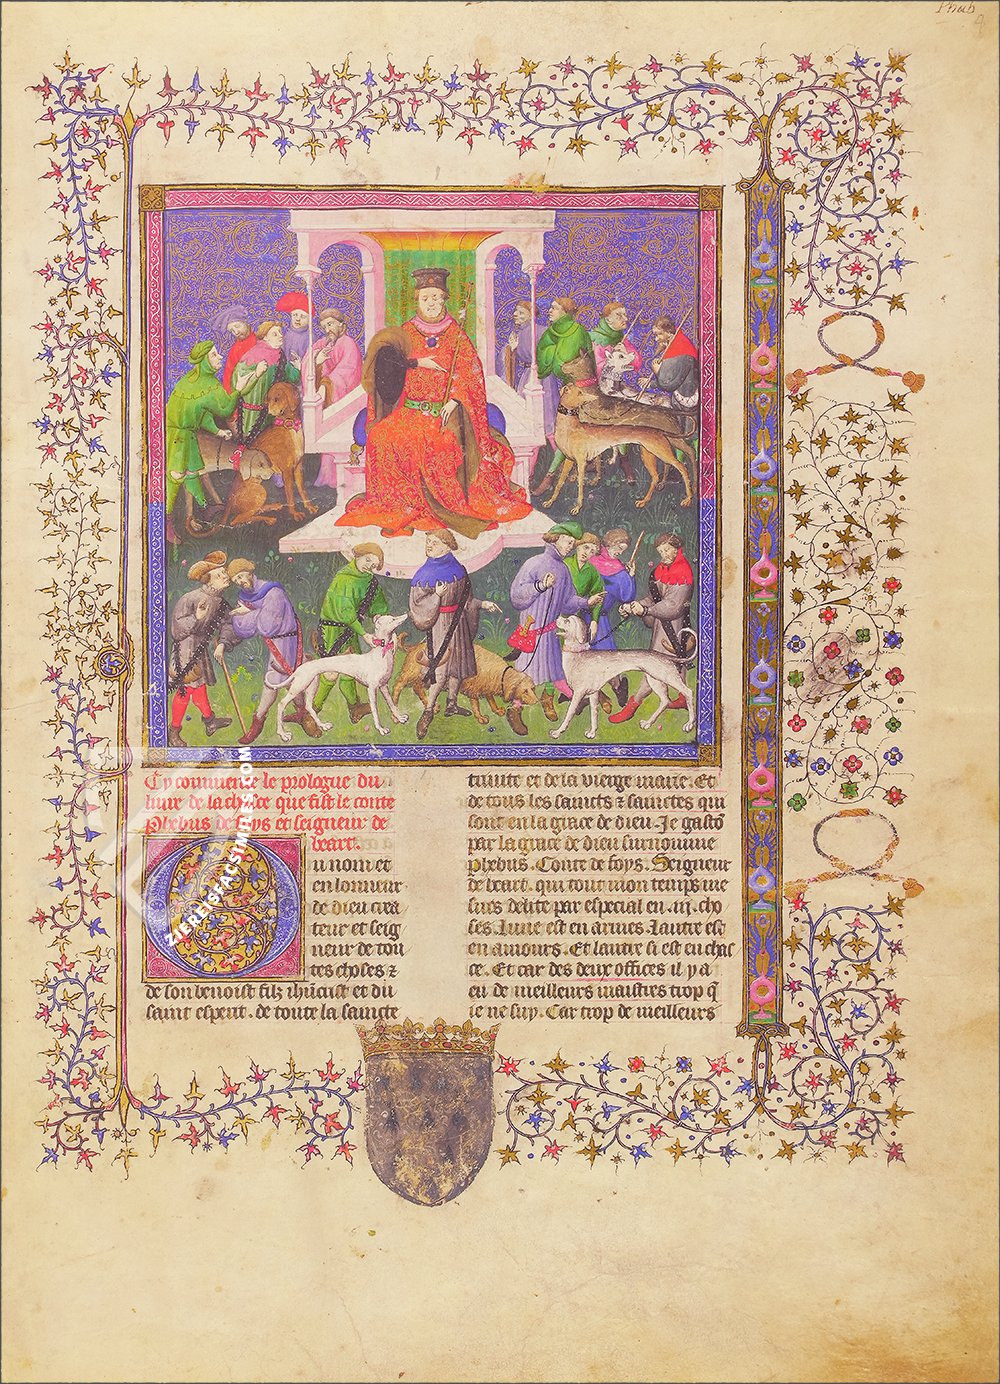 Pheb
Cy commence le prologue du
liure de la chasce que fist le conte
Phebus de foys et seigneur de
beart.
Ou nom et
en lonneur
de dieu crea
teur et seig
neur de tou
tes choses ⁊
de son benoist filz ihūcrist et du
saint esperit. de toute la saincte
trinite et de la vierge marie. Et
de tous les saincts ⁊ sainctes qui
sont en la grace de dieu. Je gasto
par la grace de dieu surnomme
phebus. Conte de foys. Seigneur
de beart. qui tout mon temps me
suis delite par especial en .iij. cho
ses. Lune est en armes. Lautre est
en amours. Et lautre si est en chas
ce. Et car des deux offices il y a
eu de meilleurs maistres trop q̄
ie ne suy. Car trop de meilleurs
ZIEREIS FACSIMILES.COM